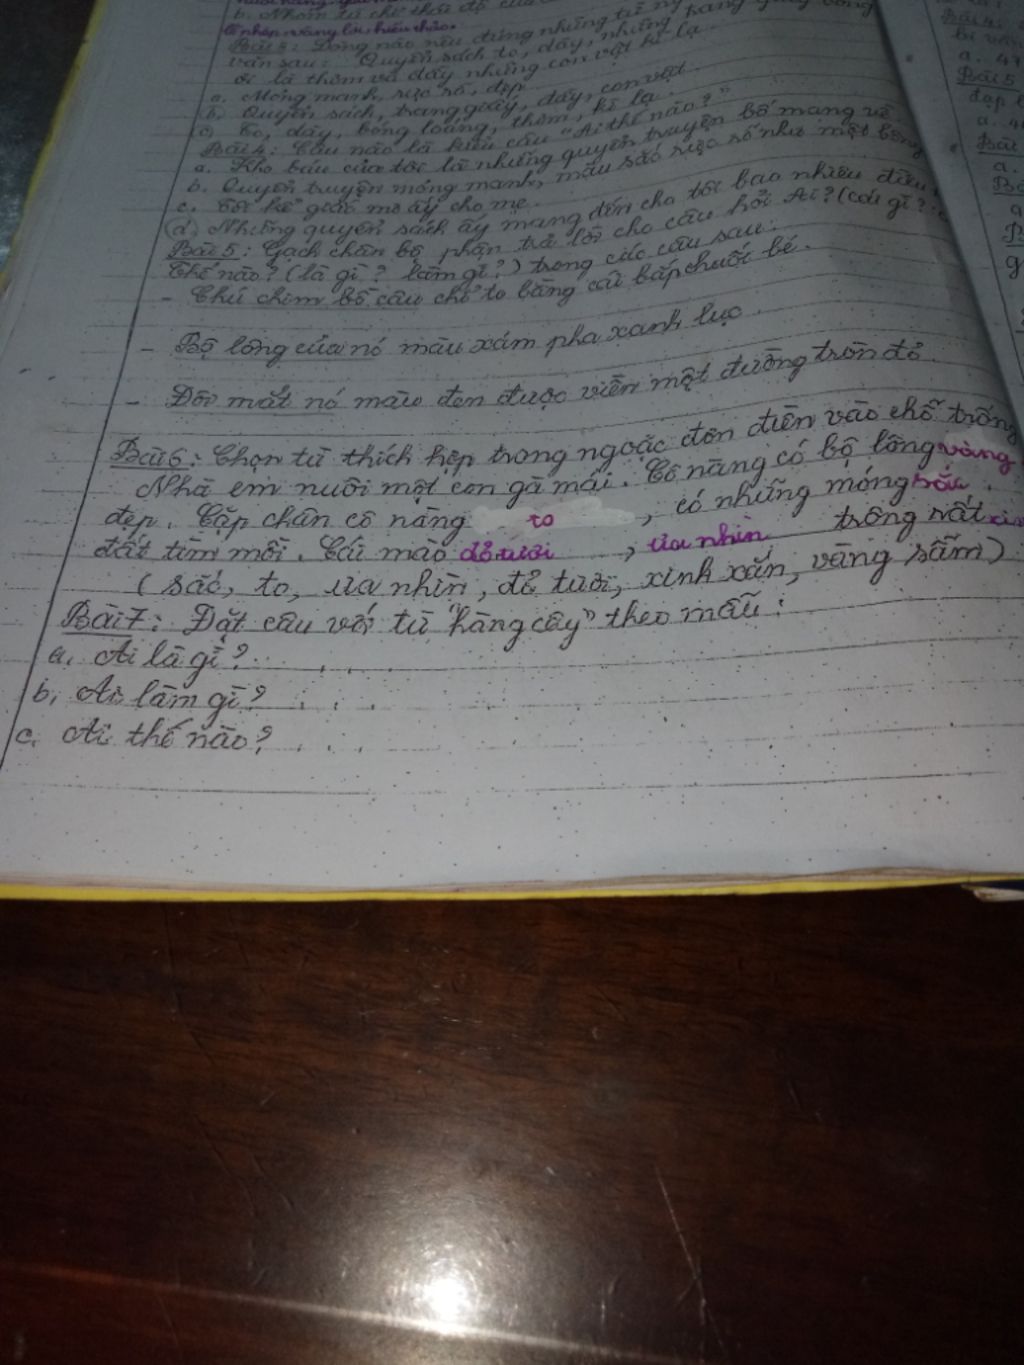 b. Nhóm từ chỉ thái độ của
lễ phép, vâng lời, hiếu thảo.
Bài 3: Dòng nào nêu đúng những từ ng
văn sau: "Quyển sách to, dày, những trang giấy bóng
ơi là thơm và đầy những con vật kì lạ
a. Mỏng manh, rực rỡ, đẹp
b, Quyển sách, trang giấy, đầy, con vật
c, To, dày, bóng loáng, thơm, kì lạ.
Bài 4: Câu nào là kiểu câu "Ai thế nào?"
a. Kho báu của tôi là những quyển truyện bố mang về.
b. Quyển truyện mỏng manh, màu sắc rực rỡ như một bông
c. Tôi kể giấc mơ ấy cho mẹ.
d, Những quyển sách ấy mang đến cho tôi bao nhiêu điều
Bài 5: Gạch chân bộ phận trả lời cho câu hỏi Ai? (cái gì?
Thế nào? (là gì? làm gì?) trong các câu sau:
- Chú chim bồ câu chỉ to bằng cái bắp chuối bé.
- Bộ lông của nó màu xám pha xanh lục.
- Đôi mắt nó màu đen được viền một đường tròn đỏ.
Bài 6: Chọn từ thích hợp trong ngoặc đơn điền vào chỗ trống
Nhà em nuôi một con gà mái. Cô nàng có bộ lông vàng
đẹp. Cặp chân cô nàng to, có những móng sắc
đất tìm mồi. Cái mào đỏ tươi, ưa nhìn trông rất xin
(sắc, to, ưa nhìn, đỏ tươi, xinh xắn, vàng sẫm)
Bài 7: Đặt câu với từ "hàng cây" theo mẫu:
a. Ai là gì? ....
b, Ai làm gì? ....
c. Ai thế nào? ....